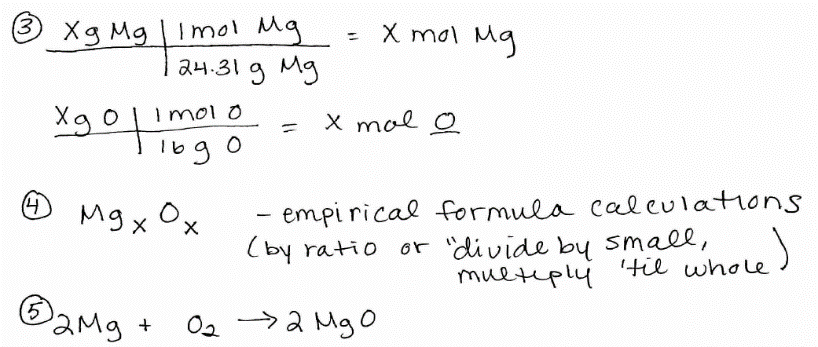 ③ Xg Mg | 1 mol Mg = X mol Mg
24.31 g Mg
Xg O | 1 mol O = X mol O
16 g O
④ MgₓOₓ - empirical formula calculations
(by ratio or "divide by small,
multiply 'til whole)
⑤ 2Mg + O₂ → 2 MgO